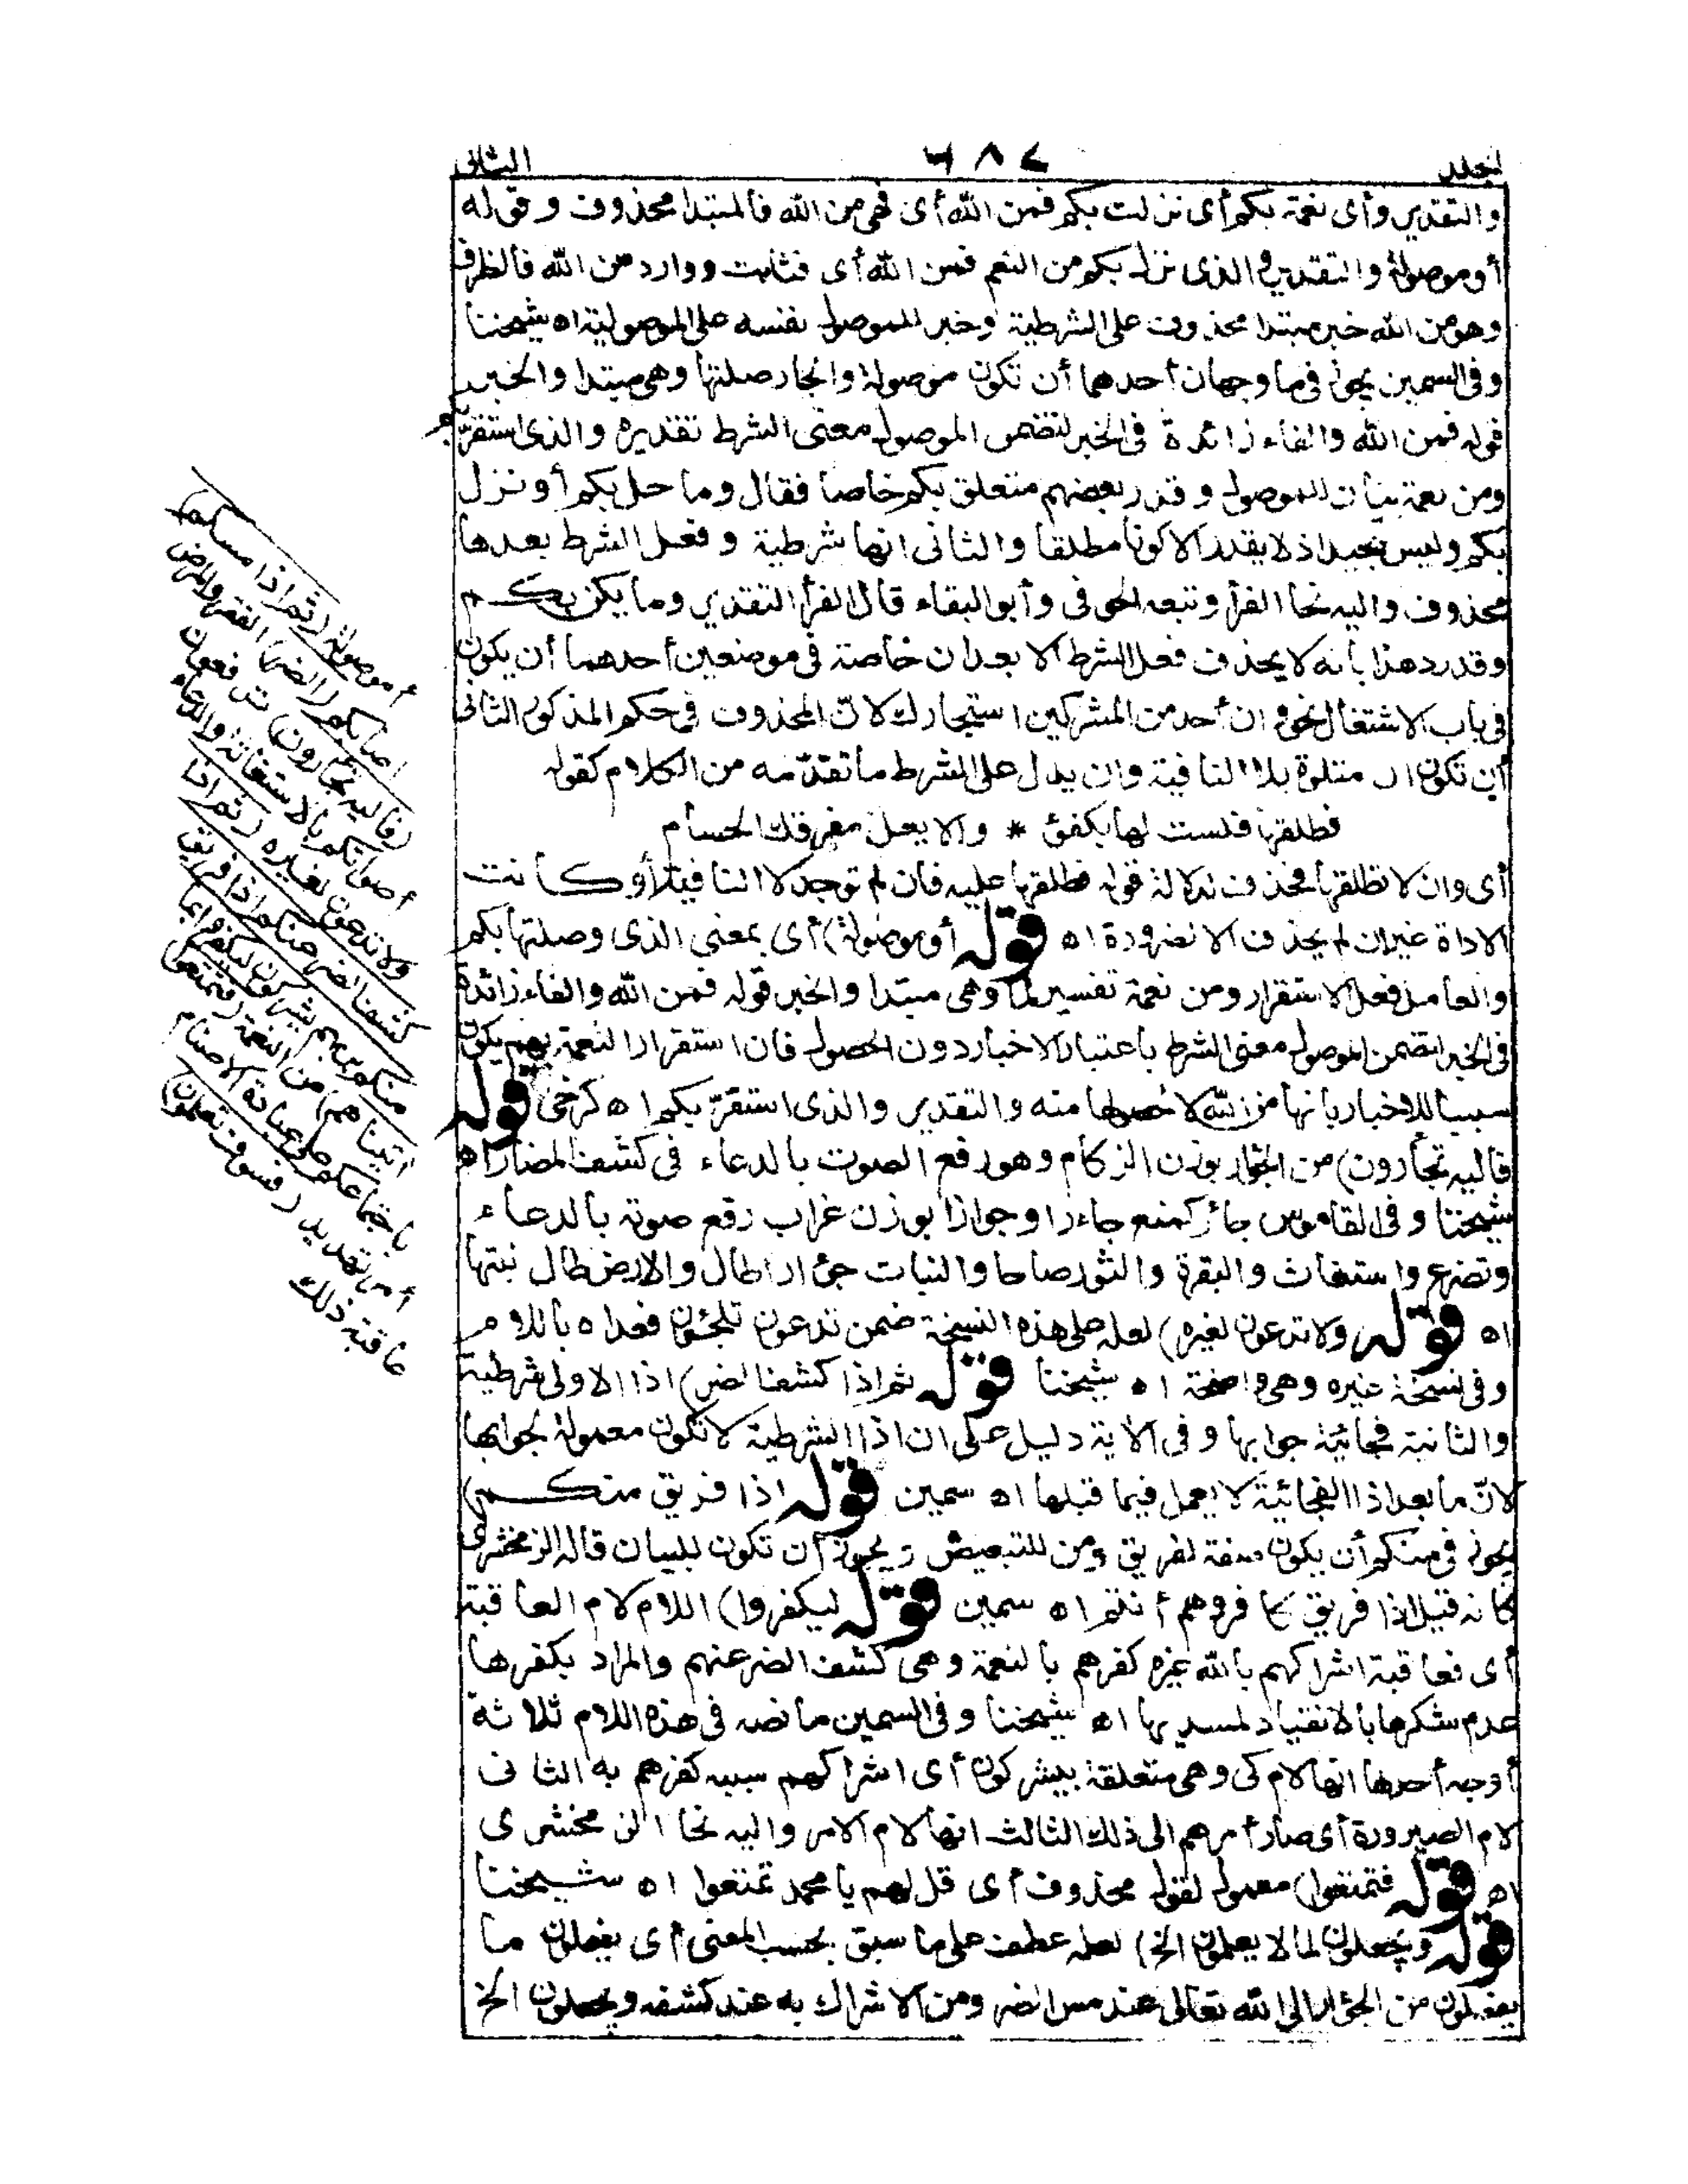 المجلد ٦٨٧ الثانى
والتقدير وأى نعمة بكم أى نزلت بكم فمن الله أى فهى من الله فالمبتدا محذوف وقوله
أو موصولة والتقدير والذى نزل بكم من النعم فمن الله أى فثابت ووارد من الله فالظرف
وهو من الله خبر مبتدا محذوف على الشرطية وخبر للموصول نفسه على الموصولية اه شيخنا
وفى السمين يجوز فى ما وجهان أحدهما أن تكون موصولة والجار صلتها وهى مبتدا والخبر
قوله فمن الله والفاء زائدة فى الخبر لتضمن الموصول معنى الشرط تقديره والذى استقرّ بكم
ومن نعمة بيان للموصول وقدر بعضهم متعلق بكم خاصا فقال وما حل بكم أو نزل
بكم وليس بجيد اذ لا يقدر الا كونا مطلقا والثانى انها شرطية وفعل الشرط بعدها
محذوف واليه نحا الفرأ وتبعه الحوفى وأبو البقاء قال الفرأ التقدير وما يكن بكم
وقد رد هذا بأنه لا يحذف فعل الشرط الا بعد ان خاصة فى موضعين أحدهما أن يكون
فى باب الاشتغال نحو وان أحد من المشركين استجارك لانّ المحذوف فى حكم المذكور الثانى
أن تكون ان متلوة بلا النافية وان يدل على الشرط ما تقدّمه من الكلام كقوله
فطلقها فلست لها بكفؤ * والا يعل مفرقك الحسام
أى وان لا تطلقها فحذف لدلالة قوله فطلقها عليه فان لم توجد لا النافية أو كانت
الاداة غير ان لم يحذف الا لضرورة اه قوله أو موصولة) أى بمعنى الذى وصلتها بكم
والعامل فعل الاستقرار ومن نعمة تفسير لما وهى مبتدا والخبر قوله فمن الله والفاء زائدة
فى الخبر لتضمن الموصول معنى الشرط باعتبار الاخبار دون الحصول فان استقرار النعمة بهم يكون
سببا للاخبار بانها من الله لا لحصولها منه والتقدير والذى استقرّ بكم اه كرخى قوله
فاليه تجأرون) من الجؤار بوزن الزكام وهو رفع الصوت بالدعاء فى كشف المضار اه
شيخنا وفى القاموس جأر كمنع جاءرا وجوارا بوزن غراب رفع صوته بالدعاء
وتضرع واستغاث والبقرة والثور صاحا والنبات جؤارا طال والارض طال نبتها
اه قوله ولا تدعون لغيره) لعله على هذه النسخة ضمن تدعون تلجئون فعداه باللام
وفى نسخة غيره وهى واضحة اه شيخنا قوله ثم اذا كشف الضر) اذا الاولى شرطية
والثانية فجائية جوابها وفى الآية دليل على ان اذا الشرطية لا تكون معمولة لجوابها
لانّ ما بعد اذا الفجائية لا يعمل فيما قبلها اه سمين قوله اذا فريق منكم)
يجوز فى منكم أن يكون صفة لفريق ومن للتبعيض ويجوز أن تكون للبيان قاله الزمخشرى
كانه قيل اذا فريق كافر وهم أنتم اه سمين قوله ليكفروا) اللام لام العاقبة
أى فعاقبة اشراكهم بالله غيره كفرهم بالنعمة وهى كشف الضر عنهم والمراد بكفرها
عدم شكرها بالانقياد لمسديها اه شيخنا وفى السمين ما نصه فى هذه اللام ثلاثة
أوجه أحدها انها لام كى وهى متعلقة بيشركون أى اشراكهم سببه كفرهم به الثانى
لام الصيرورة أى صار أمرهم الى ذلك الثالث انها لام الامر واليه نحا الزمخشرى
اه قوله فتمتعوا) معمول لقول محذوف أى قل لهم يا محمد تمتعوا اه شيخنا
قوله ويجعلون لما لا يعلمون الخ) لعله عطف على ما سبق بحسب المعنى أى يفعلون ما
يفعلون من الجؤار الى الله تعالى عند مس الضر ومن الاشراك به عند كشفه ويجعلون الخ
أو موصولة (ثم اذا مسكم)
أصابكم (الضر) الفقر والمرض
(فاليه تجأرون) ترفعون
أصواتكم بالاستغاثة والدعاء
ولا تدعون لغيره (ثم اذا
كشف الضر عنكم اذا فريق
منكم بربهم يشركون ليكفروا بما
آتيناهم) من النعمة (فتمتعوا)
باجتماعكم على عبادة الاصنام
أمر تهديد (فسوف تعلمون)
عاقبة ذلك